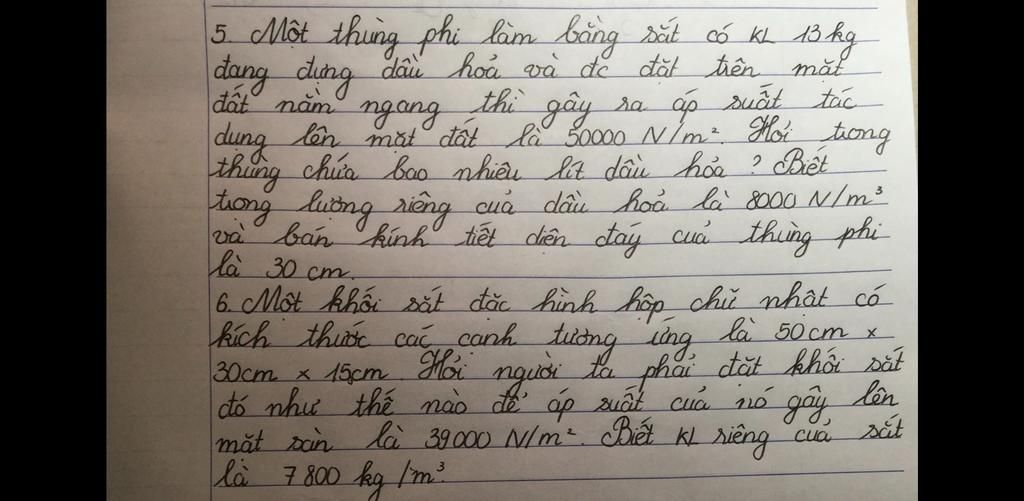 5. Một thùng phi làm bằng sắt có KL 13kg
đang đựng dầu hoả và đc đặt trên mặt
đất nằm ngang thì gây ra áp suất tác
dụng lên mặt đất là 50000 N/m². Hỏi trong
thùng chứa bao nhiêu lít dầu hỏa ? Biết
trong lượng riêng của dầu hoả là 8000 N/m³
và bán kính tiết diện đáy của thùng phi
là 30 cm.
6. Một khối sắt đặc hình hộp chữ nhật có
kích thước các cạnh tương ứng là 50cm x
30cm x 15cm Hỏi người ta phải đặt khối sắt
đó như thế nào để áp suất của nó gây lên
mặt sàn là 39000 N/m². Biết KL riêng của sắt
là 7800 kg/m³.